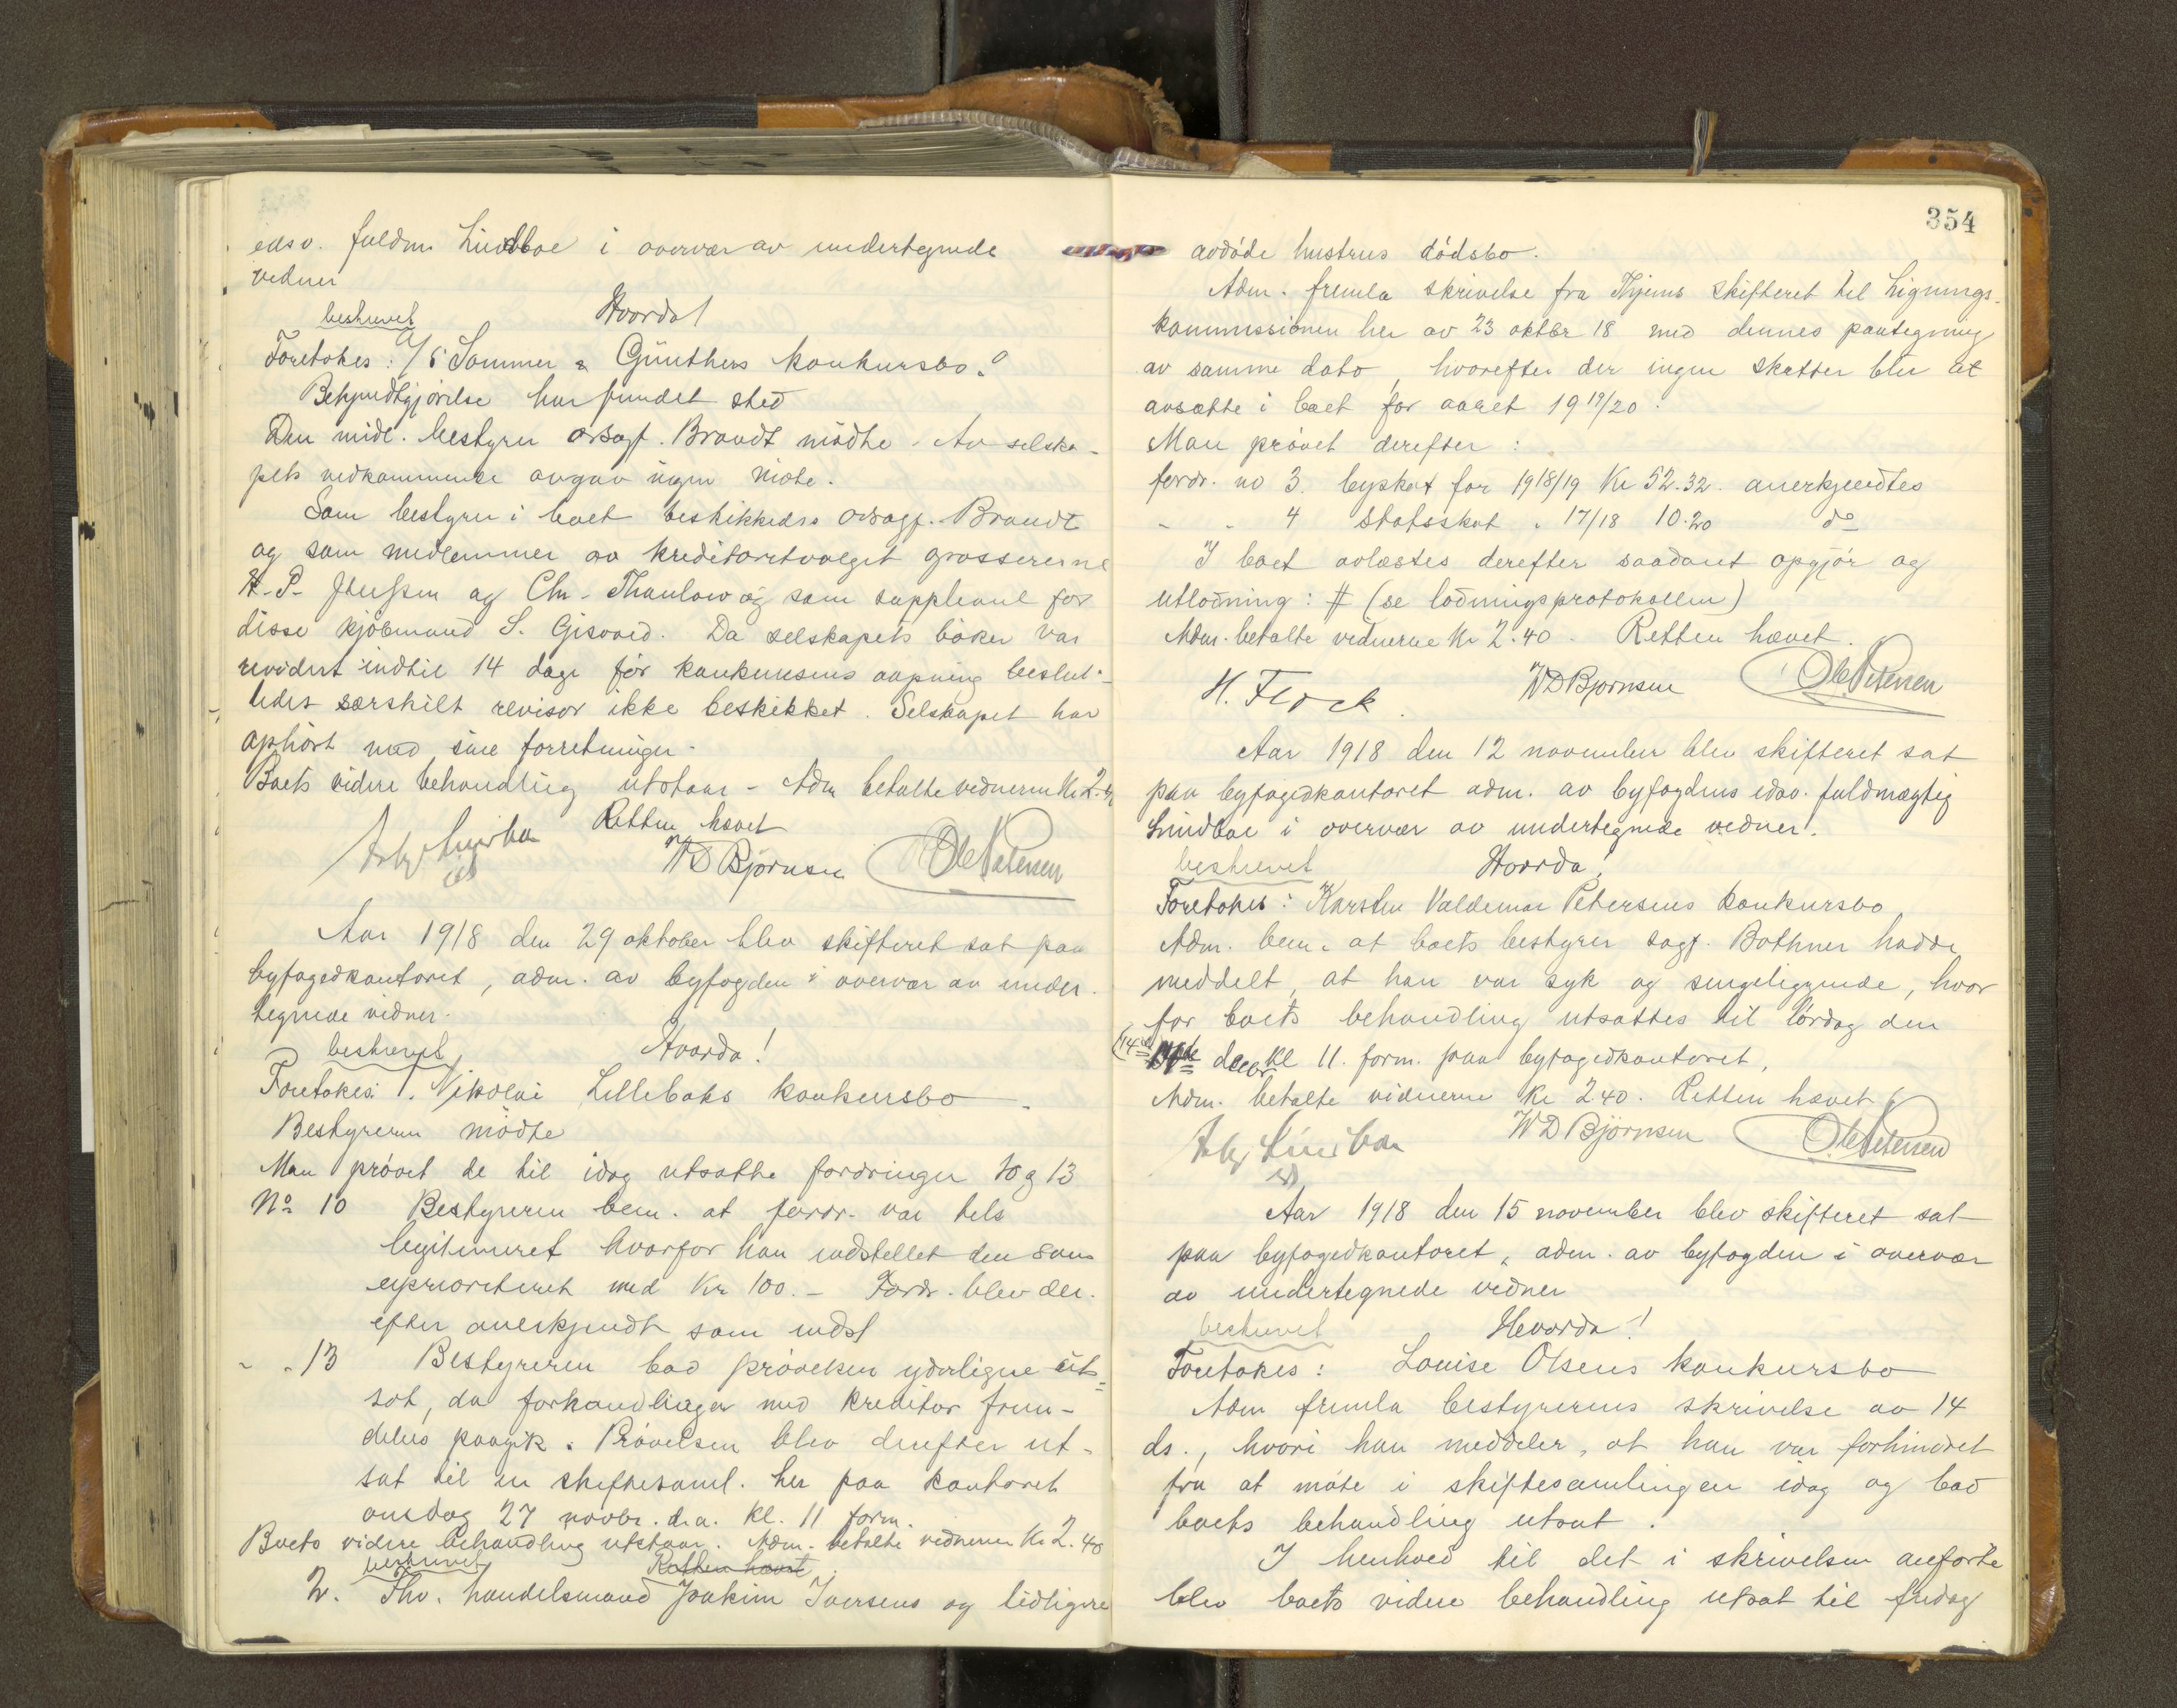 edsv. fuldm. Lindboe i overvær av undertegnede
vidner
beskrevet Hvorda!
Foretokes: A/S Sommer & Günthers konkursbo.
Bekjendtgjörelse har fundet sted
Den midl. bestyrer orsagf. Brandt mödte. Av selska-
pets vedkommende avgav ingen möte.
Som bestyrer i boet beskikkedes orsagf. Brandt
og som medlemmer av kreditorutvalget grossererne
H. P. Jenssen og Chr. Thaulow og som suppleant for
disse kjöbmand S. Gisvold. Da selskapets böker var
revidert indtil 14 dage för konkursens aapning beslut-
tedes særskilt revisor ikke beskikket. Selskapet har
ophört med sine forretninger.
Boets videre behandling utstaar - Adm betalte vidnerne Kr 2.40
Retten hævet
WD Björnsen Ole Petersen
Aar 1918 den 29 oktober blev skifteret sat paa
byfogedkontoret, adm. av byfogden i overvær av under-
tegnede vidner.
beskrevet Hvorda!
Foretokes: 1. Nikolai Lillebaks konkursbo.
Bestyreren mödte
Man prövet de til idag utsatte fordringer 10 og 13
No 10 Bestyreren bem. at fordr. var dels
legitimeret hvorfor han indstillet den som
uprioriteret med Kr 100.- Fordr. blev der-
efter anerkjendt som indst
" " 13 Bestyreren bad prövelsen yderligere ut-
sat, da forhandlinger med kreditor frem-
deles paagik. Prövelsen blev derefter ut-
sat til en skiftesaml. her paa kontoret
onsdag 27 novbr. d.a. kl. 11 form.
Boets videre behandling utstaar. Adm. betalte vidnerne Kr 2.40
beskrevet Retten hævet
2. Fhv. handelsmand Joakim Iversens og tidligere
354
avdöde hustrus dödsbo.
Adm. fremla skrivelse fra Hjems skifteret til Lignings-
kommissionen her av 23 oktbr 18 med dennes paategning
av samme dato, hvorefter der ingen skatter blir at
avsætte i boet for aaret 1919/20.
Man prövet derefter:
fordr. no 3. byskat for 1918/19 Kr 52.32. anerkjendtes
" " 4 Statsskat " 17/18 10.20 do
I boet avlæstes derefter saadant opgjör og
utlodning: # (se lodningsprotokollen)
Adm. betalte vidnerne Kr 2.40. Retten hævet.
H. Flock. WDBjörnsen Ole Petersen
Aar 1918 den 12 november blev skifteret sat
paa byfogedkontoret adm. av byfogdens edsv. fuldmægtig
Lindboe i overvær av undertegnede vidner.
beskrevet Hvorda!
Foretokes: Karsten Valdemar Petersens konkursbo
Adm. bem. at boets bestyrer sagf. Bothner hadde
meddelt, at han var syk og sengeliggende, hvor
for boets behandling utsattes til lördag den
14de decbr Kl 11. form. paa byfogedkontoret,
Adm. betalte vidnerne Kr 2.40. Retten hævet
WD Björnsen Ole Petersen
Aar 1918 den 15 november blev skifteret sat
paa byfogedkontoret, adm. av byfogden i overvær
av undertegnede vidner
beskrevet Hvorda!
Foretokes: Louise Olsens konkursbo
Adm fremla bestyrerens skrivelse av 14
ds., hvori han meddeler, at han var forhindret
fra at möte i skiftesamlingen idag og bad
boets behandling utsat.
I henhold til det i skrivelsen anförte
blev boets videre behandling utsat til fredag